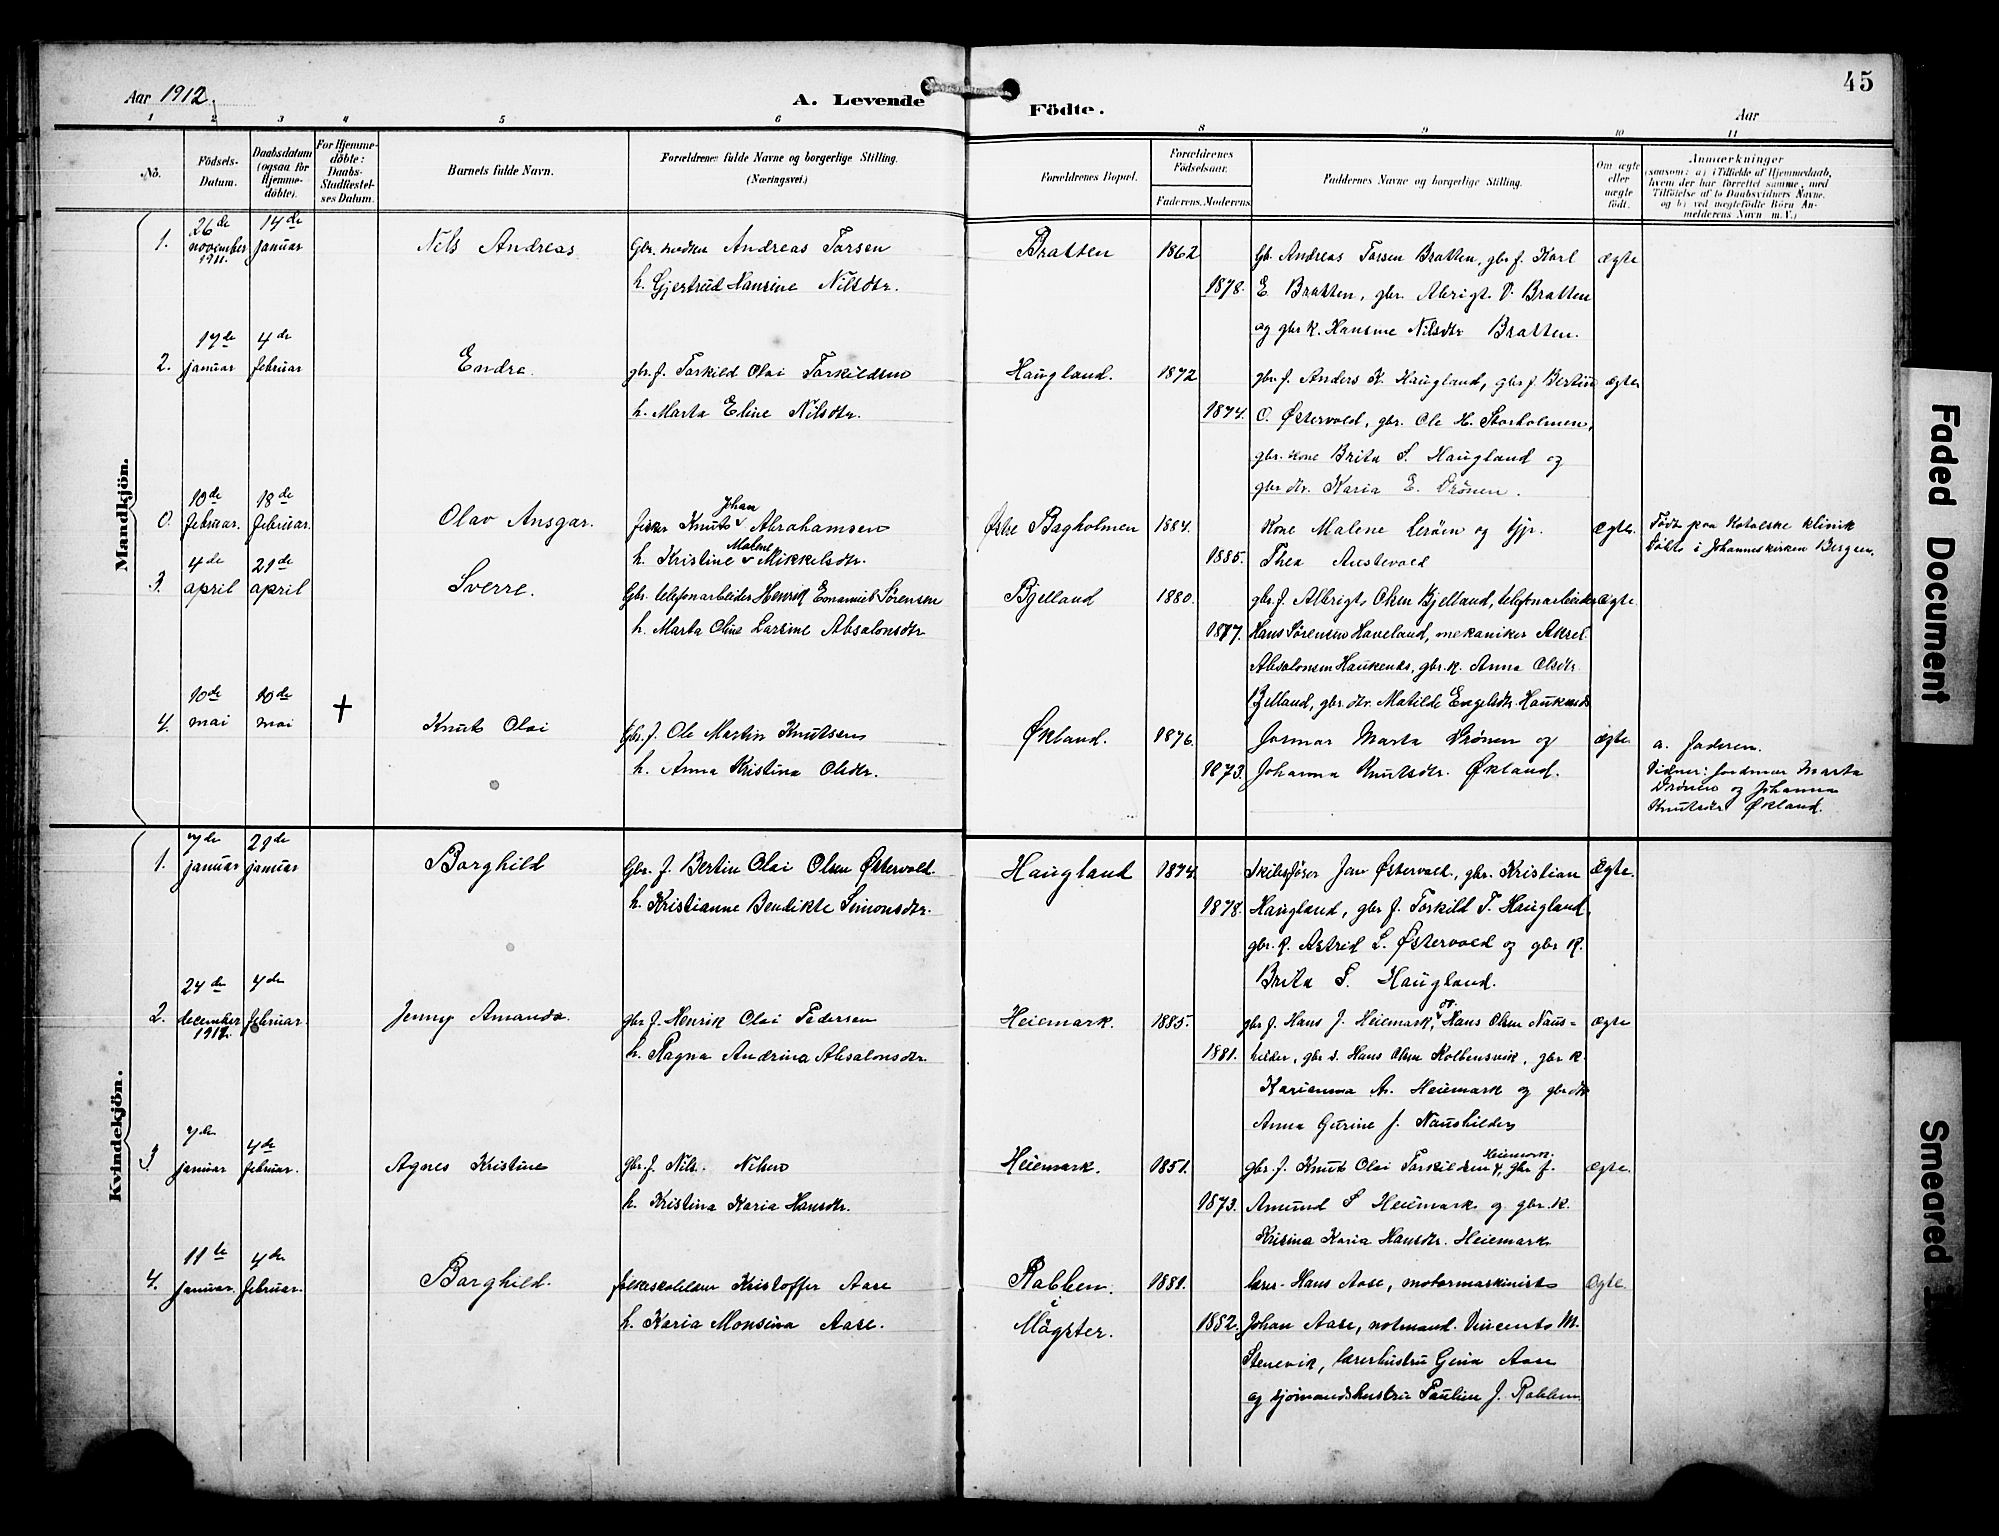 Aar 1912.
A. Levende Födte.
Aar
45
1 2 3 4 5 6 8 9 10 11
No.
Födsels-Datum.
Daabsdatum (ogsaa for Hjemmedöbte).
For Hjemmedöbte: Daabs-Stadfæstelses Datum.
Barnets fulde Navn.
Forældrenes fulde Navne og borgerlige Stilling.
(Næringsvei.)
Forældrenes Bopæl.
Forældrenes Födselsaar.
Faderens. Moderens.
Faddernes Navne og borgerlige Stilling.
Om ægte eller uægte födt.
Anmærkninger
(saasom: a) i Tilfælde af Hjemmedaab, hvem der har forrettet samme, med Tilföielse af to Daabsvidners Navne, og b) ved uægtefödte Börn Anmelderens Navn m. V.)
Mandkjön.
1. 26de november 1911. 14de januar Nils Andreas Andreas Torsen Bratten 1862 Gb. Andreas Torsen Bratten, gbr. f. Karl ægte
h. Gjertrud Hansine Nilsdtr. 1878. E. Bratten, gbr. Abrigt. Bratten
og gbr k. Hansine Nilsdtr Bratten.
2. 17de januar 4de februar Endre. gbr. f. Torkild Olai Torkildsen Haugland. 1872 gbr. f. Anders K. Haugland, gbr. f. Bertin ægte
h. Marta Eline Nilsdtr. 1874. O. Østervold, gbr. Ole H. Storholmen,
gbr. kone Brita S. Haugland og
gbr dtr. Karia E. Drönen.
0. 10de februar. 18de februar. Olav Ansgar. fisker Knut Johan Abrahamsen Østre Bagholmen 1884. Kone Malene Leröen og Gjr. ægte. Födt paa Katolske klinik
h. Kristine Malene Mikkelsdtr. 1885. Thea Austevold döbt i Johanneskirken Bergen.
3. 4de april 21de april Sverre. Gbr. telefonarbeider Henrik Emanuel Sörensen Bjelland 1880. gbr. f. Albrigt Olsen Bjelland, telefonarbeider ægte.
h. Marta Oline Larsine Absalonsdtr 1877. Hans Sörensen Haveland, mekaniker Aksel
Absalonsen Haukenæs, gbr. k. Anna Olsdtr.
Bjelland, gbr. dtr. Matilde Engelsdtr. Haukenæs
4. 10de mai 10de mai + Knut Olai Gbr. f. Ole Martin Knutsen Økland. 1876. Jormor Marta Drönen og ægte. a. faderen.
h. Anna Kristina Olsdtr. 1873. Johanna Knutsdtr. Økland. Vidner: Jordmor Marta
Drönen og Johanna
Knutsdtr Økland.
Kvindekjön.
1. 7de januar 21de januar Borghild Gbr. f. Bertin Olai Olsen Østervold. Haugland 1874. Skibsförer Jon Østervold, gbr. Kristian Ægte.
h. Kristianne Bendikte Simonsdtr. 1878. Haugland, gbr f. Torkild T. Haugland,
gbr. k. Astrid L. Østervold og gbr k.
Brita S. Haugland.
2. 24de december 1912. 4de februar. Jenny Amanda gbr f. Henrik Olai Pedersen Heiemark. 1885. gbr f. Hans J. Heiemark, og Hans Olsen Naus- Ægte
h. Ragna Andrina Absalonsdtr. 1881. hilder, gbr s. Hans Olsen Kolbensvik, gbr k.
Karianna A. Heiemark og gbr dtr
Anna Gurine J. Naushilder
3. 7de januar 4de februar. Agnes Kristine gbr. f. Nils Nilsen Heiemark. 1851. gbr. f. Knut Olai Torkildsen Heiemark, gbr f. ægte.
h. Kristina Karia Hansdtr. 1873. Amund S Heiemark og gbr. k.
Krisina Karia Hansdtr. Heiemark
4. 11te januar. 4de februar. Borghild. folkeskolelærer Kristoffer Aase Rabben. 1881. lærer Hans Aase, motormaskinist Ægte.
h. Karia Monsina Aase. i Mögster. 1882. Johan Aase, notmand Vincents M.
Stenevik, lærerhustru Gina Aase
og sjömandshustru Pauline J. Rabben.
Faded Document
Smeared